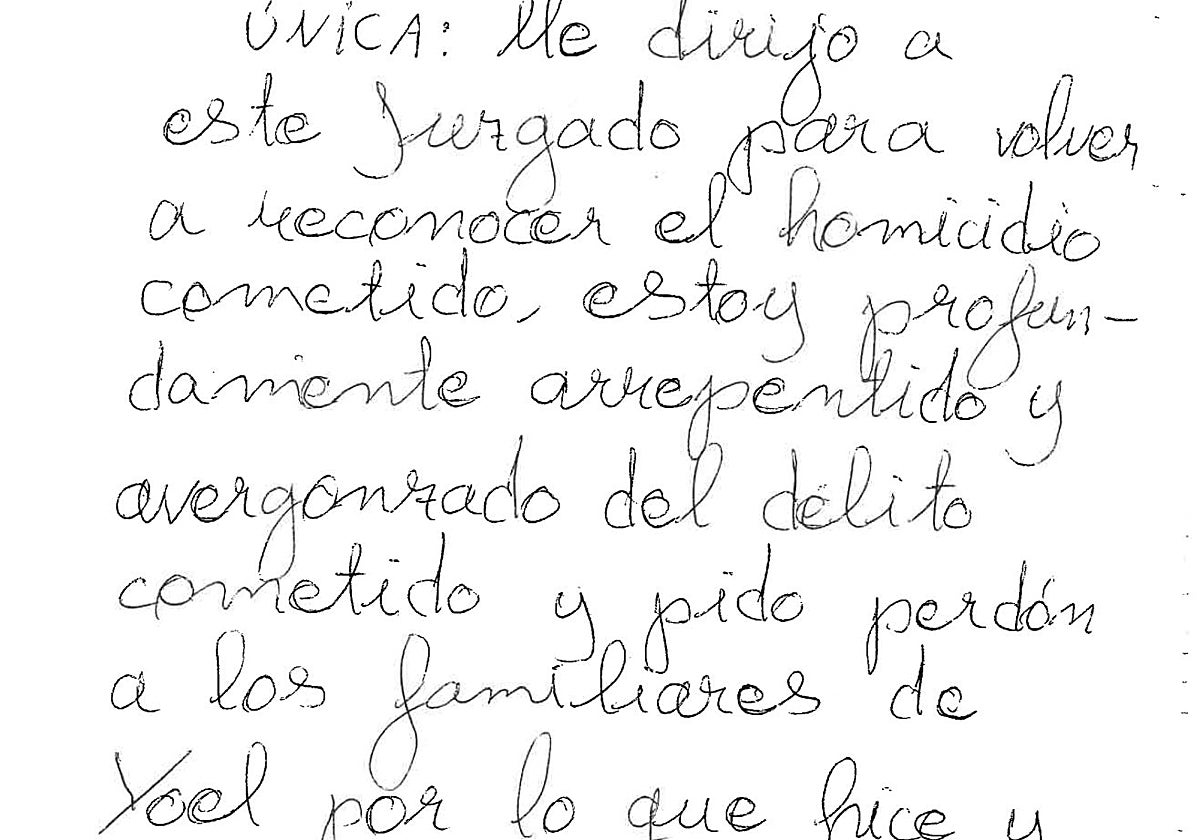 ÚNICA: Me dirijo a
este Juzgado para volver
a reconocer el homicidio
cometido, estoy profun-
damente arrepentido y
avergonzado del delito
cometido y pido perdón
a los familiares de
Yoel por lo que hice y